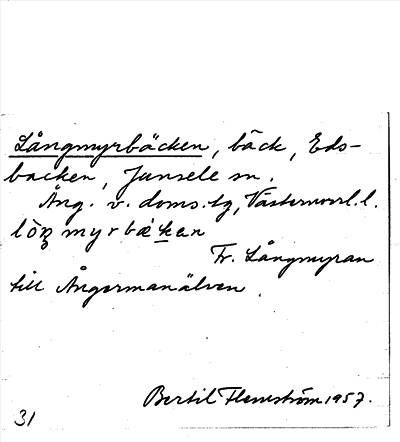 Långmyrbäcken, bäck, Eds-
backen, Junsele sn.
Ång. v. doms.tg, Västernorrl.l.
lòŋmyrbæ̀ken
Fr. Långmyran
till Ångermanälven.
Bertil Flemström 1957.
31